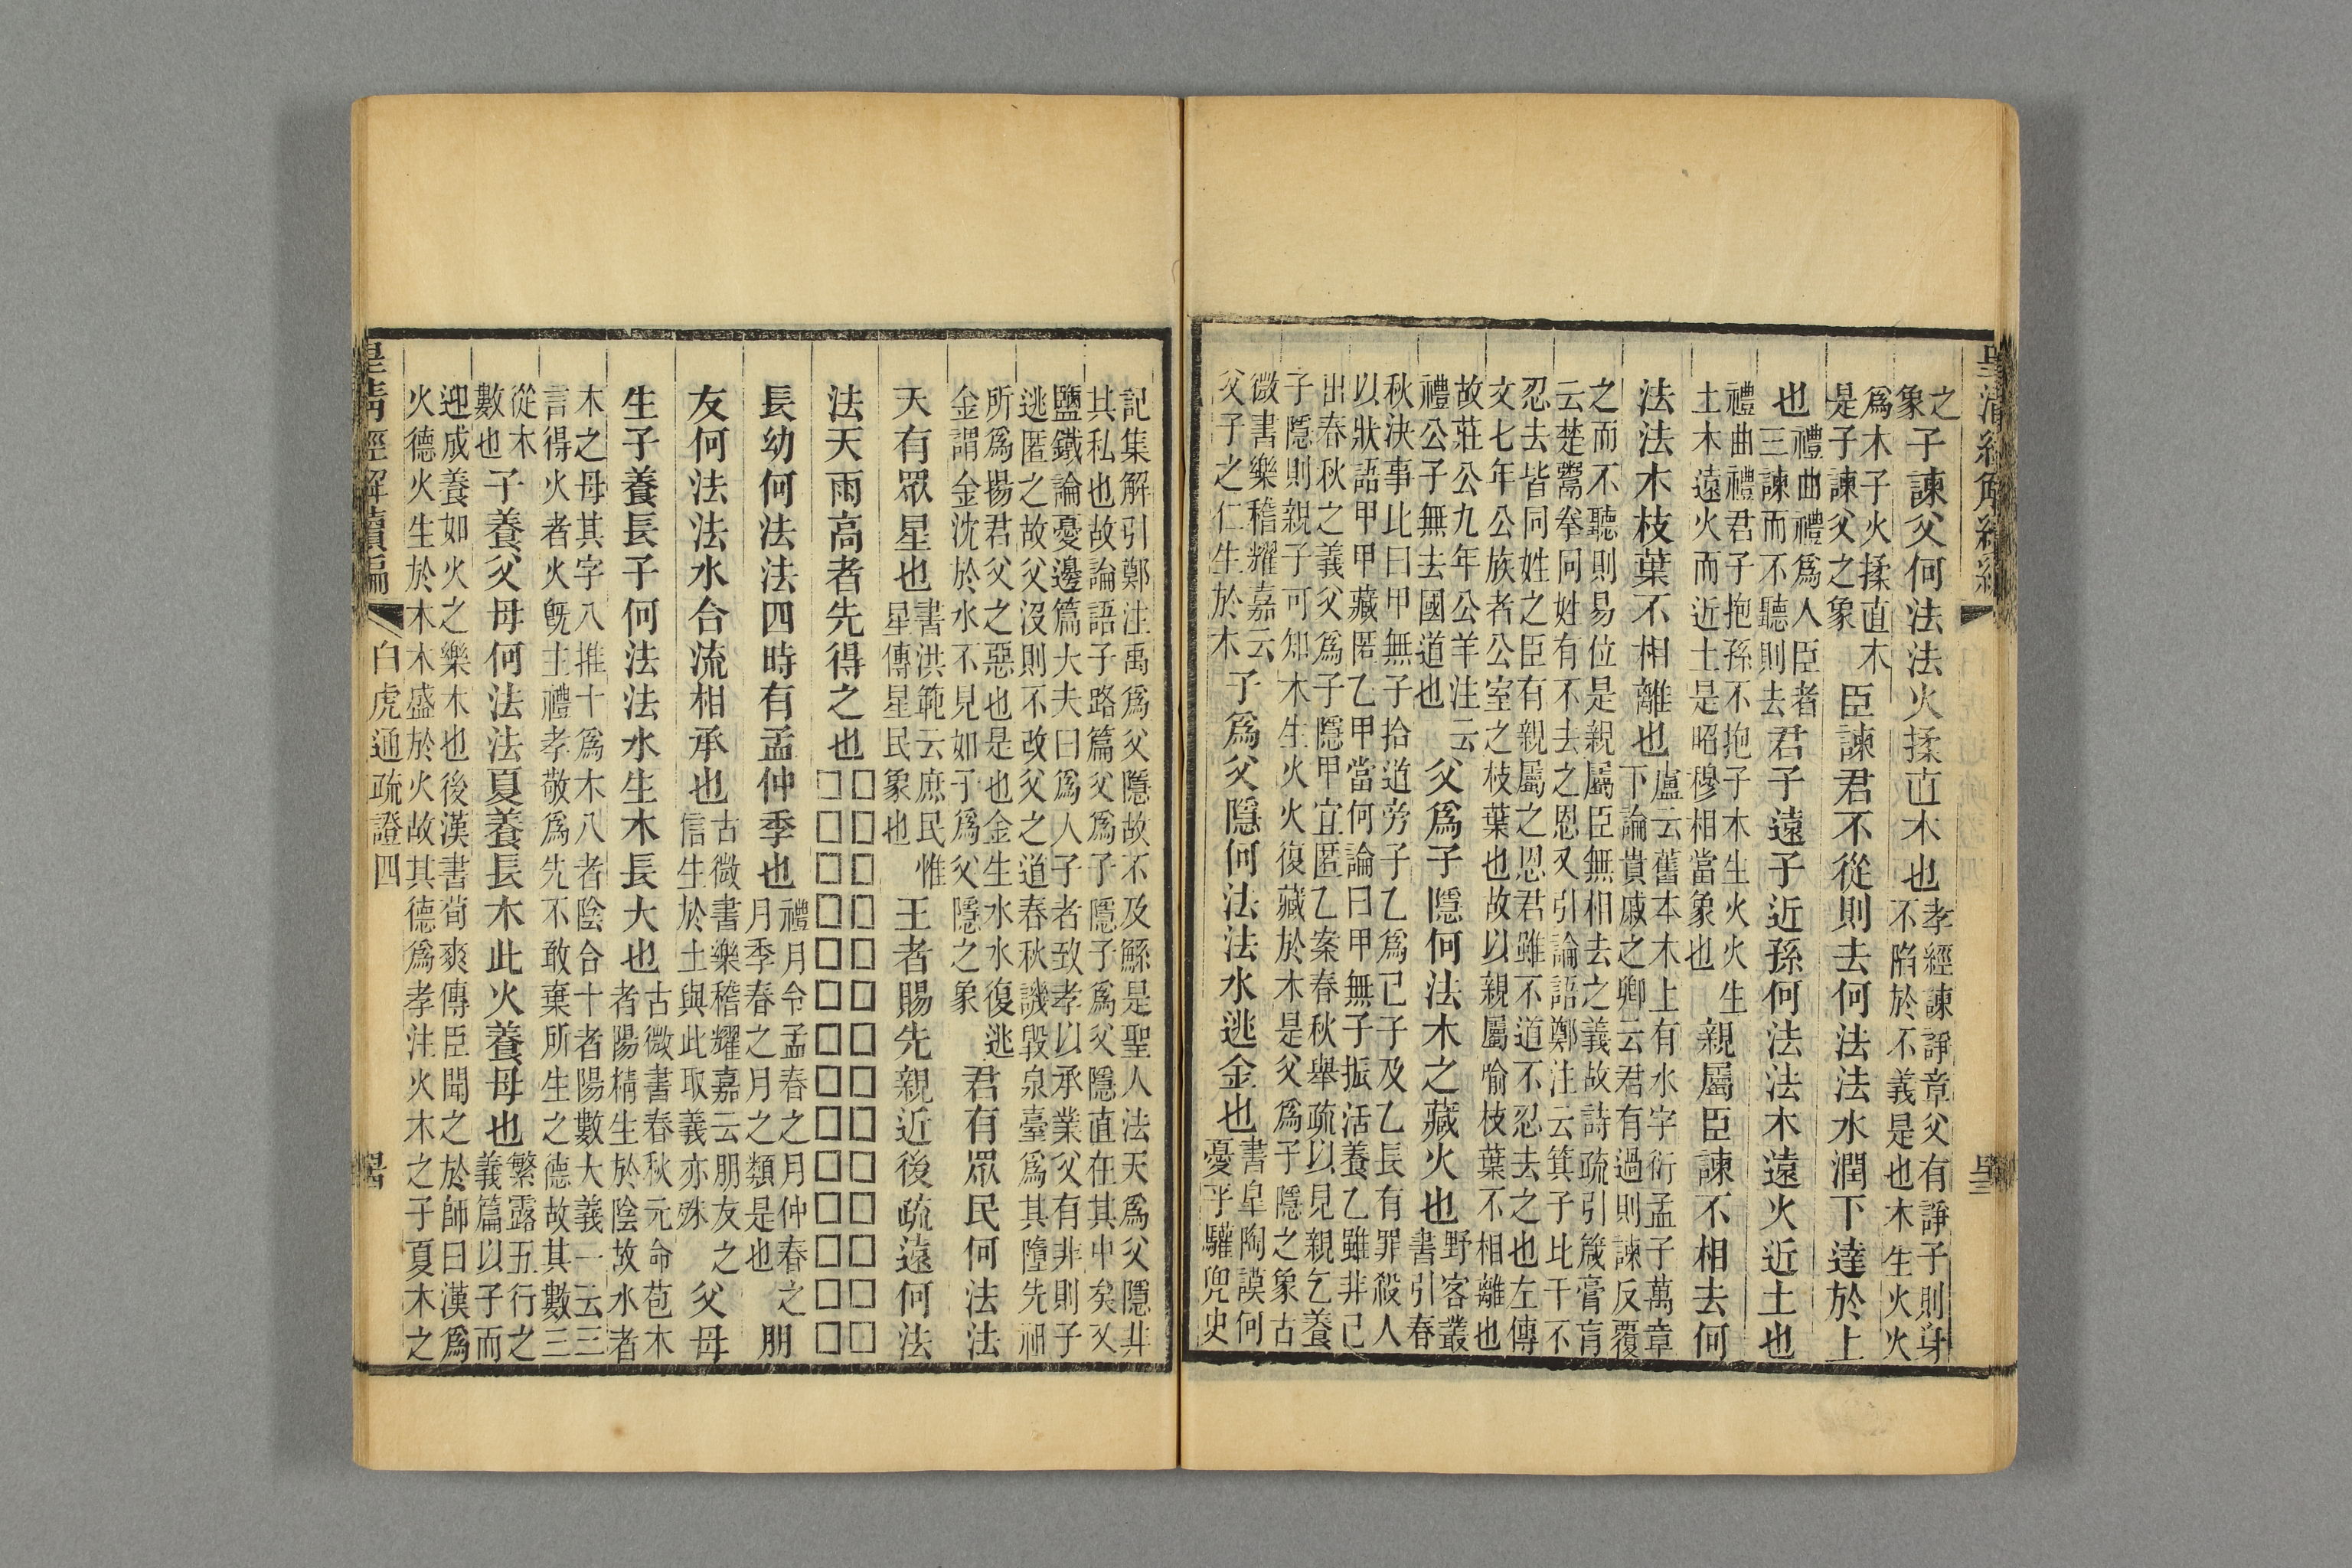 皇清經解續編
之
象
子諫父何法法火揉直木也
孝經諫諍章父有諍子則身
不陷於不義是也木生火火
爲木子火揉直木
是子諫父之象
臣諫君不從則去何法法水潤下達於上
也
禮曲禮爲人臣者
三諫而不聽則去
君子遠子近孫何法法木遠火近土也
禮曲禮君子抱孫不抱子木生火火生
土木遠火而近土是昭穆相當象也
親屬臣諫不相去何
法法木枝葉不相離也
盧云舊本木上有水字衍孟子萬章
下論貴戚之卿云君有過則諫反覆
之而不聽則易位是親屬臣無相去之義故詩疏引箴膏肓
云楚鬻拳同姓有不去之恩又引論語鄭注云箕子比干不
忍去皆同姓之臣有親屬之恩君雖不道不忍去之也左傳
文七年公族者公室之枝葉也故以親屬喻枝葉不相離也
故莊公九年公羊注云
禮公子無去國道也
父爲子隱何法法木之藏火也
野客叢
書引春
秋決事比曰甲無子拾道旁子乙爲己子及乙長有罪殺人
以狀語甲甲藏匿乙甲當何論曰甲無子振活養乙雖非己
出春秋之義父爲子隱甲宜匿乙案春秋舉疏以見親乞養
子隱則親子可知木生火火復藏於木是父爲子隱之象古
微書樂稽耀嘉云
父子之仁生於木
子爲父隱何法法水逃金也
書皐陶謨何
憂乎驩兜史
記集解引鄭注禹爲父隱故不及鯀是聖人法天爲父隱幷
其私也故論語子路篇父爲子隱子爲父隱直在其中矣又
鹽鐵論憂邊篇大夫曰爲人子者致孝以承業父有非則子
逃匿之故父沒則不改父之道春秋譏毀泉臺爲其隳先祖
所爲揚君父之惡也是也金生水水復逃
金謂金沈於水不見如子爲父隱之象
君有眾民何法法
天有眾星也
書洪範云庶民惟
星傳星民象也
王者賜先親近後疏遠何法
法天雨高者先得之也
□□□□□□□□□□□□□□
□□□□□□□□□□□□□□
長幼何法法四時有孟仲季也
禮月令孟春之月仲春之
月季春之月之類是也
朋
友何法法水合流相承也
古微書樂稽耀嘉云朋友之
信生於土與此取義亦殊
父母
生子養長子何法法水生木長大也
古微書春秋元命苞木
者陽精生於陰故水者
木之母其字八推十爲木八者陰合十者陽數大義一云三
言得火者火旣主禮孝敬爲先不敢棄所生之德故其數三
從木
數也
子養父母何法法夏養長木此火養母也
繁露五行之
義篇以子而
迎成養如火之樂木也後漢書荀爽傳臣聞之於師曰漢爲
火德火生於木木盛於火故其德爲孝注火木之子夏木之
皇清經解續編
白虎通疏證四